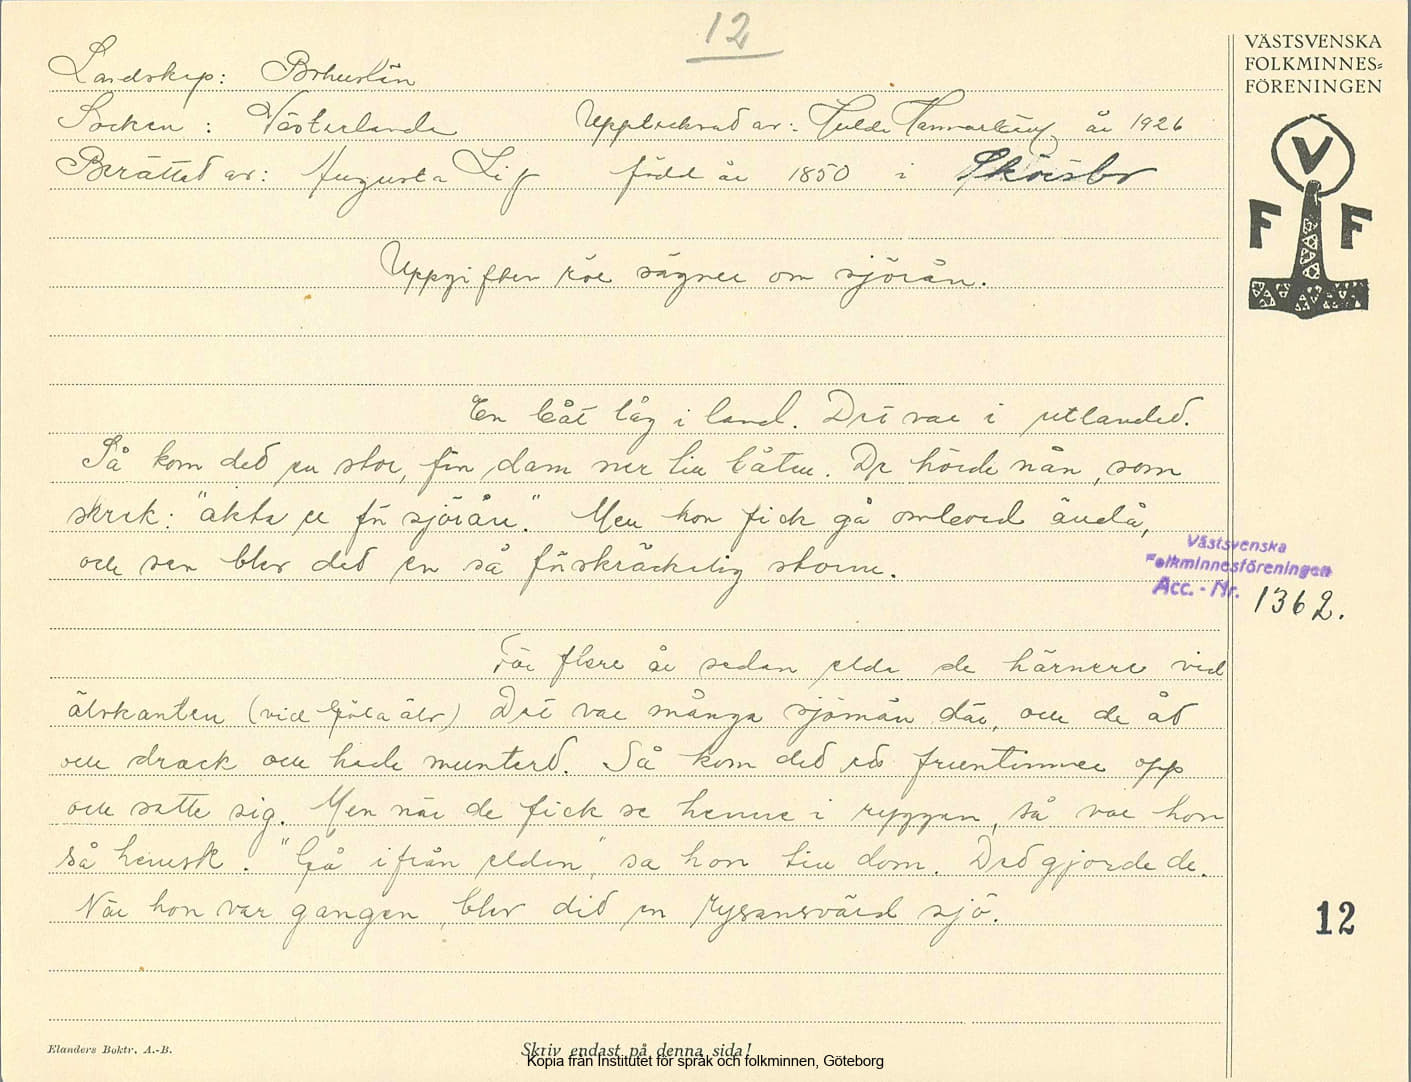 12
VÄSTSVENSKA
FOLKMINNES=
FÖRENINGEN
V
F F
Landskap: Bohuslän
Socken: Västerlanda Upptecknad av: Hulda Hammarbäck år 1926
Berättad av: Augusta Lif född år 1850 i Skörsbo
Uppgiften rör sägner om sjörån.
En båt låg i land. Det var i utlanded.
Så kom ded en stor, fin dam ner till båten. De hörde nån, som
skrek: "akta er för sjörån." Men hon fick gå ombord ändå,
och sen blev ded en så förskräckelig storm.
Västsvenska
Folkminnesföreningen
Acc. - Nr. 1362.
För flere år sedan elda de härnere vid
älvkanten (vid Göta älv) Det var många sjömän där, och de åd
och drack och hade munterd. Så kom ded ed fruntimmer opp
och satte sig. Men när de fick se henne i ryggen, så var hon
så hemsk. "Gå ifrån elden", sa hon till dom. Ded gjorde de.
När hon var gången, blev ded en rysansvärd sjö.
12
Elanders Boktr. A.-B.
Skriv endast på denna sida!
Kopia från Institutet för språk och folkminnen, Göteborg